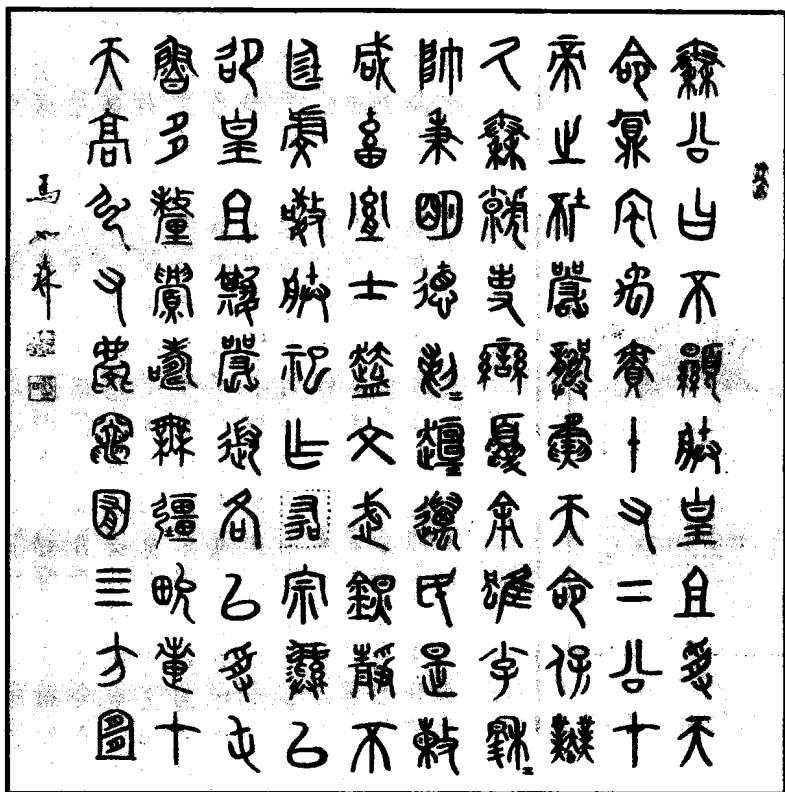 秦公曰不顯朕皇且受天
命鼏宅禹賷十又二公才
帝之坏嚴龏夤天命保業
氒秦虩事蠻夏余雖小子穆=
帥秉明德剌=趄=邁民是敕
咸畜胤士盍文武鎮靜不
廷虔敬朕祀乍宗彝以
卲皇且其嚴御各以受屯
魯多釐眉壽無疆畯疐才
天高弘又慶竈囿四方宜
馬如森